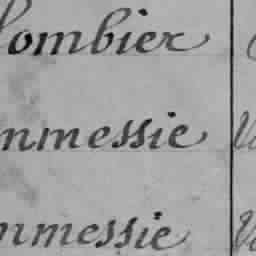 lombier
nmessie
nmessie